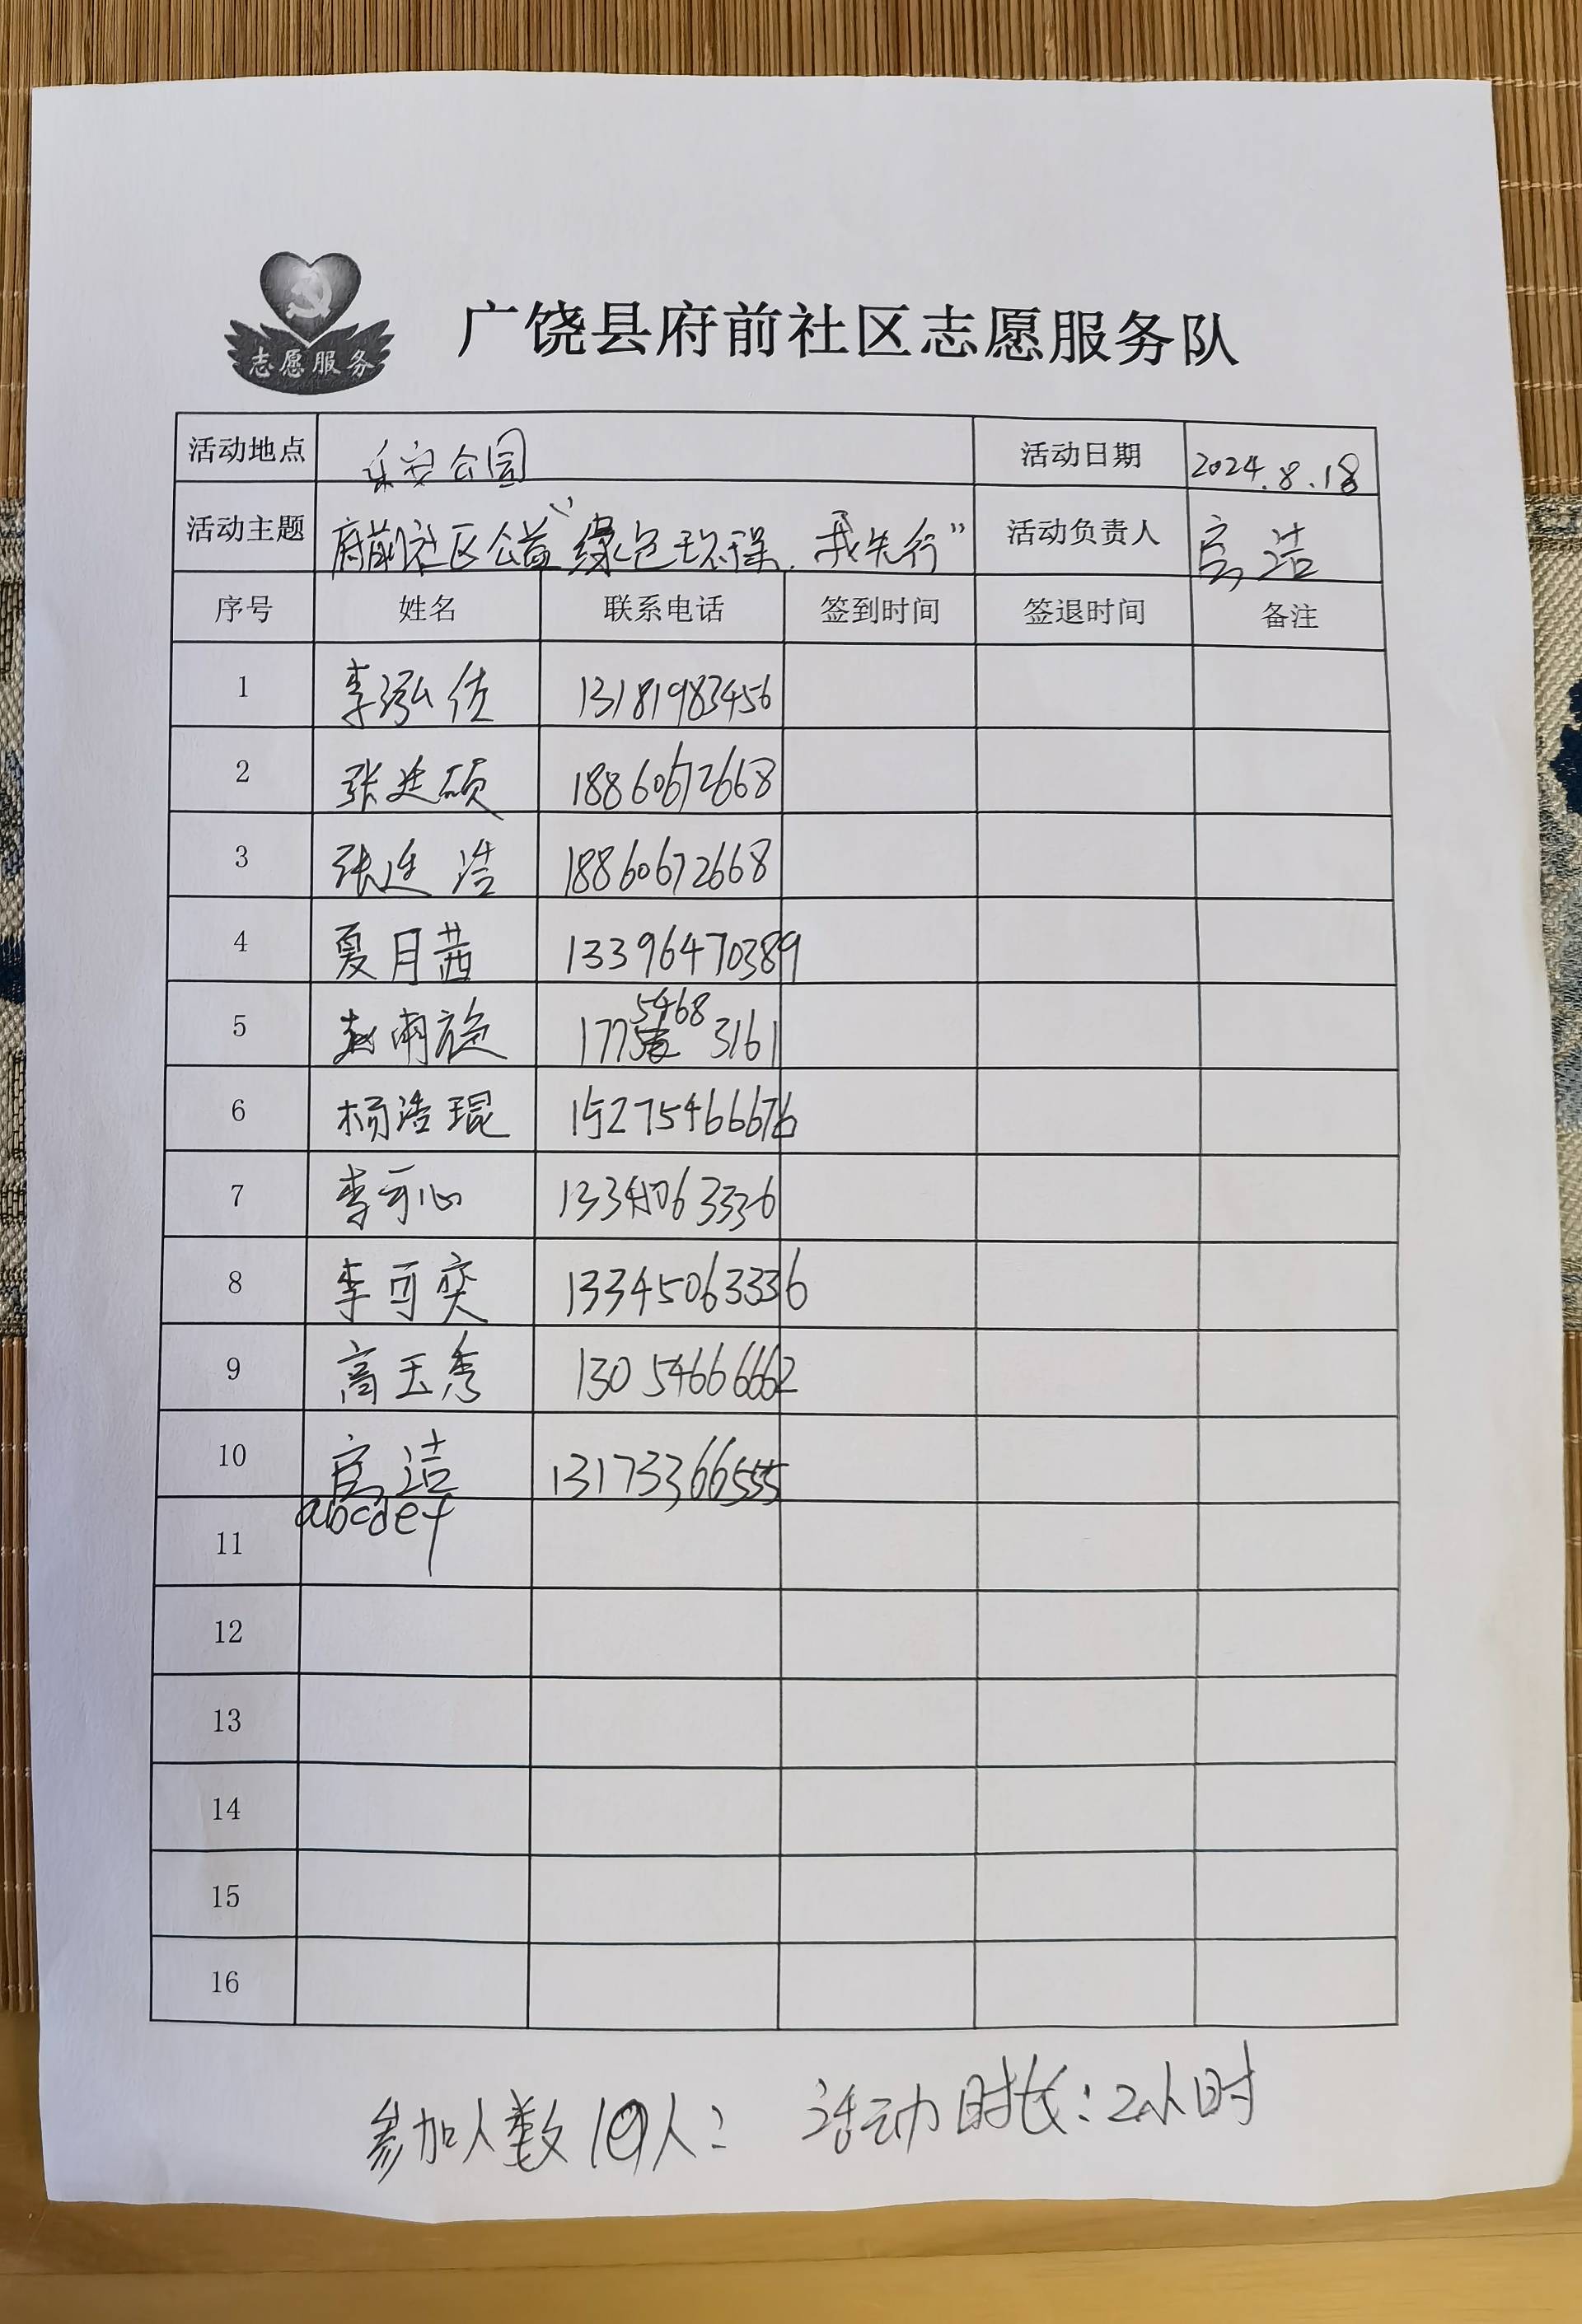 志愿服务
广饶县府前社区志愿服务队
活动地点 乐安公园 活动日期 2024.8.18
活动主题 府前社区公益“绿色环保,我先行” 活动负责人 官洁
序号 姓名 联系电话 签到时间 签退时间 备注
1 李泓佚 13181983456
2 张廷硕 18860672668
3 张廷浩 18860672668
4 夏月茜 13396470389
5 赵雨旋 177 5468 3161
6 杨浩琨 15275466676
7 李可心 133 063336
8 李可奕 13345063336
9 高玉秀 13054666662
10 官洁 13173366555
11 abcdef
12
13
14
15
16
参加人数10人: 活动时长:2小时